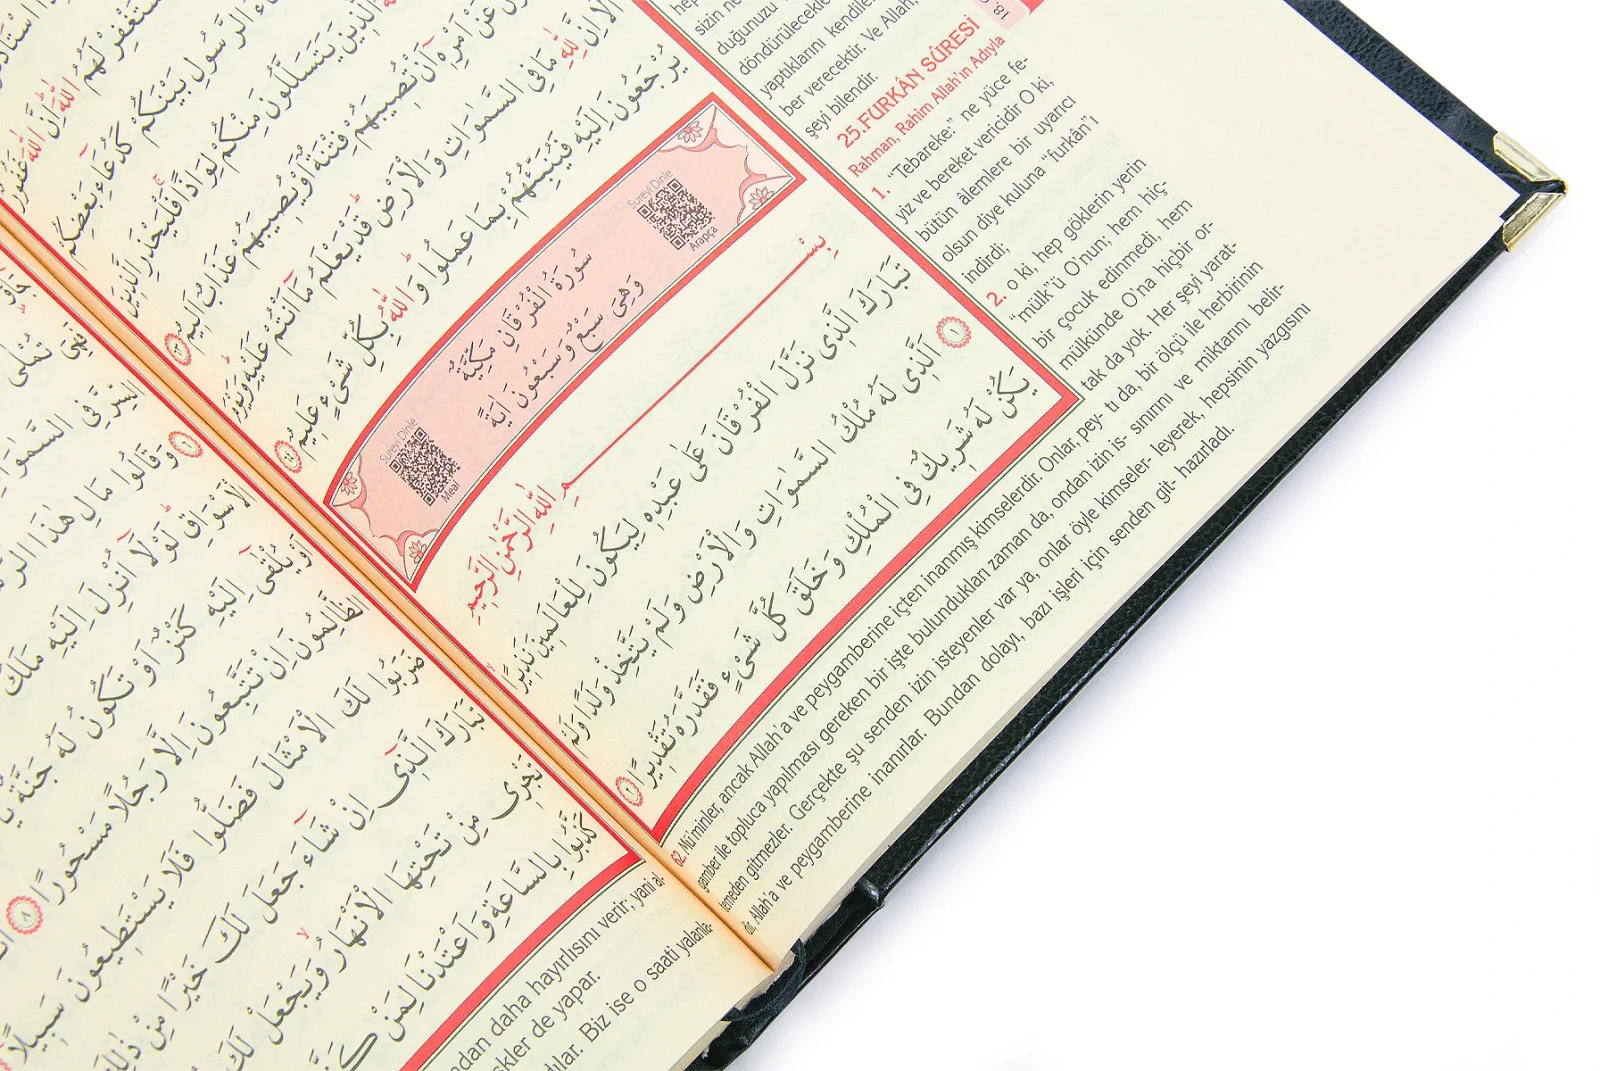 سْتَغْفِرْ لَهُمُ اللّٰهَ اِنَّ اللّٰهَ غَفُورٌ
الرَّسُولِ بَيْنَكُمْ كَدُعَٓاءِ بَعْضِكُمْ
الَّذ۪ينَ يَتَسَلَّلُونَ مِنْكُمْ لِوَاذًاۚ فَلْيَحْذَرِ الَّذ۪ينَ
عَنْ اَمْرِه۪ٓ اَنْ تُص۪يبَهُمْ فِتْنَةٌ اَوْ يُص۪يبَهُمْ عَذَابٌ اَل۪يمٌ ٦٣
اَلَٓا اِنَّ لِلّٰهِ مَا فِي السَّمٰوَاتِ وَالْاَرْضِۜ قَدْ يَعْلَمُ مَٓا اَنْتُمْ عَلَيْهِۜ وَيَوْمَ
يُرْجَعُونَ اِلَيْهِ فَيُنَبِّئُهُمْ بِمَا عَمِلُواۜ وَاللّٰهُ بِكُلِّ شَيْءٍ عَل۪يمٌ ٦٤
Sureyi Dinle
Arapça
سُورَةُ الْفُرْقَانِ مَكِّيَّةٌ
وَهِيَ سَبْعٌ وَسَبْعُونَ اٰيَةً
Sureyi Dinle
Meal
بِسْمِ اللّٰهِ الرَّحْمٰنِ الرَّح۪يمِ
تَبَارَكَ الَّذ۪ي نَزَّلَ الْفُرْقَانَ عَلٰى عَبْدِه۪ لِيَكُونَ لِلْعَالَم۪ينَ نَذ۪يرًاۙ
١ اَلَّذ۪ي لَهُ مُلْكُ السَّمٰوَاتِ وَالْاَرْضِ وَلَمْ يَتَّخِذْ وَلَدًا وَلَمْ
يَكُنْ لَهُ شَر۪يكٌ فِي الْمُلْكِ وَخَلَقَ كُلَّ شَيْءٍ فَقَدَّرَهُ تَقْد۪يرًا ٢
sizin ne
duğunuzu
döndürülecekle
yaptıklarını kendile
ber verecektir. Ve Allah,
şeyi bilendir.
25.FURKÂN SÛRESİ
Rahman, Rahim Allah'ın Adıyla
1. "Tebareke:" ne yüce fe-
yiz ve bereket vericidir O ki,
bütün âlemlere bir uyarıcı
olsun diye kuluna "furkân"ı
indirdi;
2. o ki, hep göklerin yerin
"mülk"ü O'nun; hem hiç-
bir çocuk edinmedi, hem
mülkünde O'na hiçbir or-
tak da yok. Her şeyi yarat-
tı da, bir ölçü ile herbirinin
sınırını ve miktarını belir-
leyerek, hepsinin yazgısını
hazırladı.
62. Mü'minler, ancak Allah'a ve peygamberine içten inanmış kimselerdir. Onlar, pey-
gamber ile topluca yapılması gereken bir işte bulundukları zaman da, ondan izin is-
temeden gitmezler. Gerçekte şu senden izin isteyenler var ya, onlar öyle kimseler-
dir, Allah'a ve peygamberine inanırlar. Bundan dolayı, bazı işleri için senden git-
وَقَالُوا مَالِ هٰذَا الرَّسُ
الْاَسْوَاقِۜ لَوْلَٓا اُنْزِلَ اِلَيْهِ مَلَكٌ
اَوْ يُلْقٰٓى اِلَيْهِ كَنْزٌ اَوْ تَكُونُ لَهُ جَنَّةٌ يَأْ
الظَّالِمُونَ اِنْ تَتَّبِعُونَ اِلَّا رَجُلًا مَسْحُورًا ٨
ضَرَبُوا لَكَ الْاَمْثَالَ فَضَلُّوا فَلَا يَسْتَط۪يعُونَ سَب۪يلًا
تَبَارَكَ الَّذ۪ٓي اِنْ شَٓاءَ جَعَلَ لَكَ خَيْرًا مِنْ ذٰلِكَ
تَجْر۪ي مِنْ تَحْتِهَا الْاَنْهَارُۙ وَيَجْعَلْ لَكَ
كَذَّبُوا بِالسَّاعَةِ وَاَعْتَدْنَا لِمَنْ كَذَّ
ndan daha hayırlısını verir; yani al-
şkler de yapar.
dılar. Biz ise o saati yalanla-